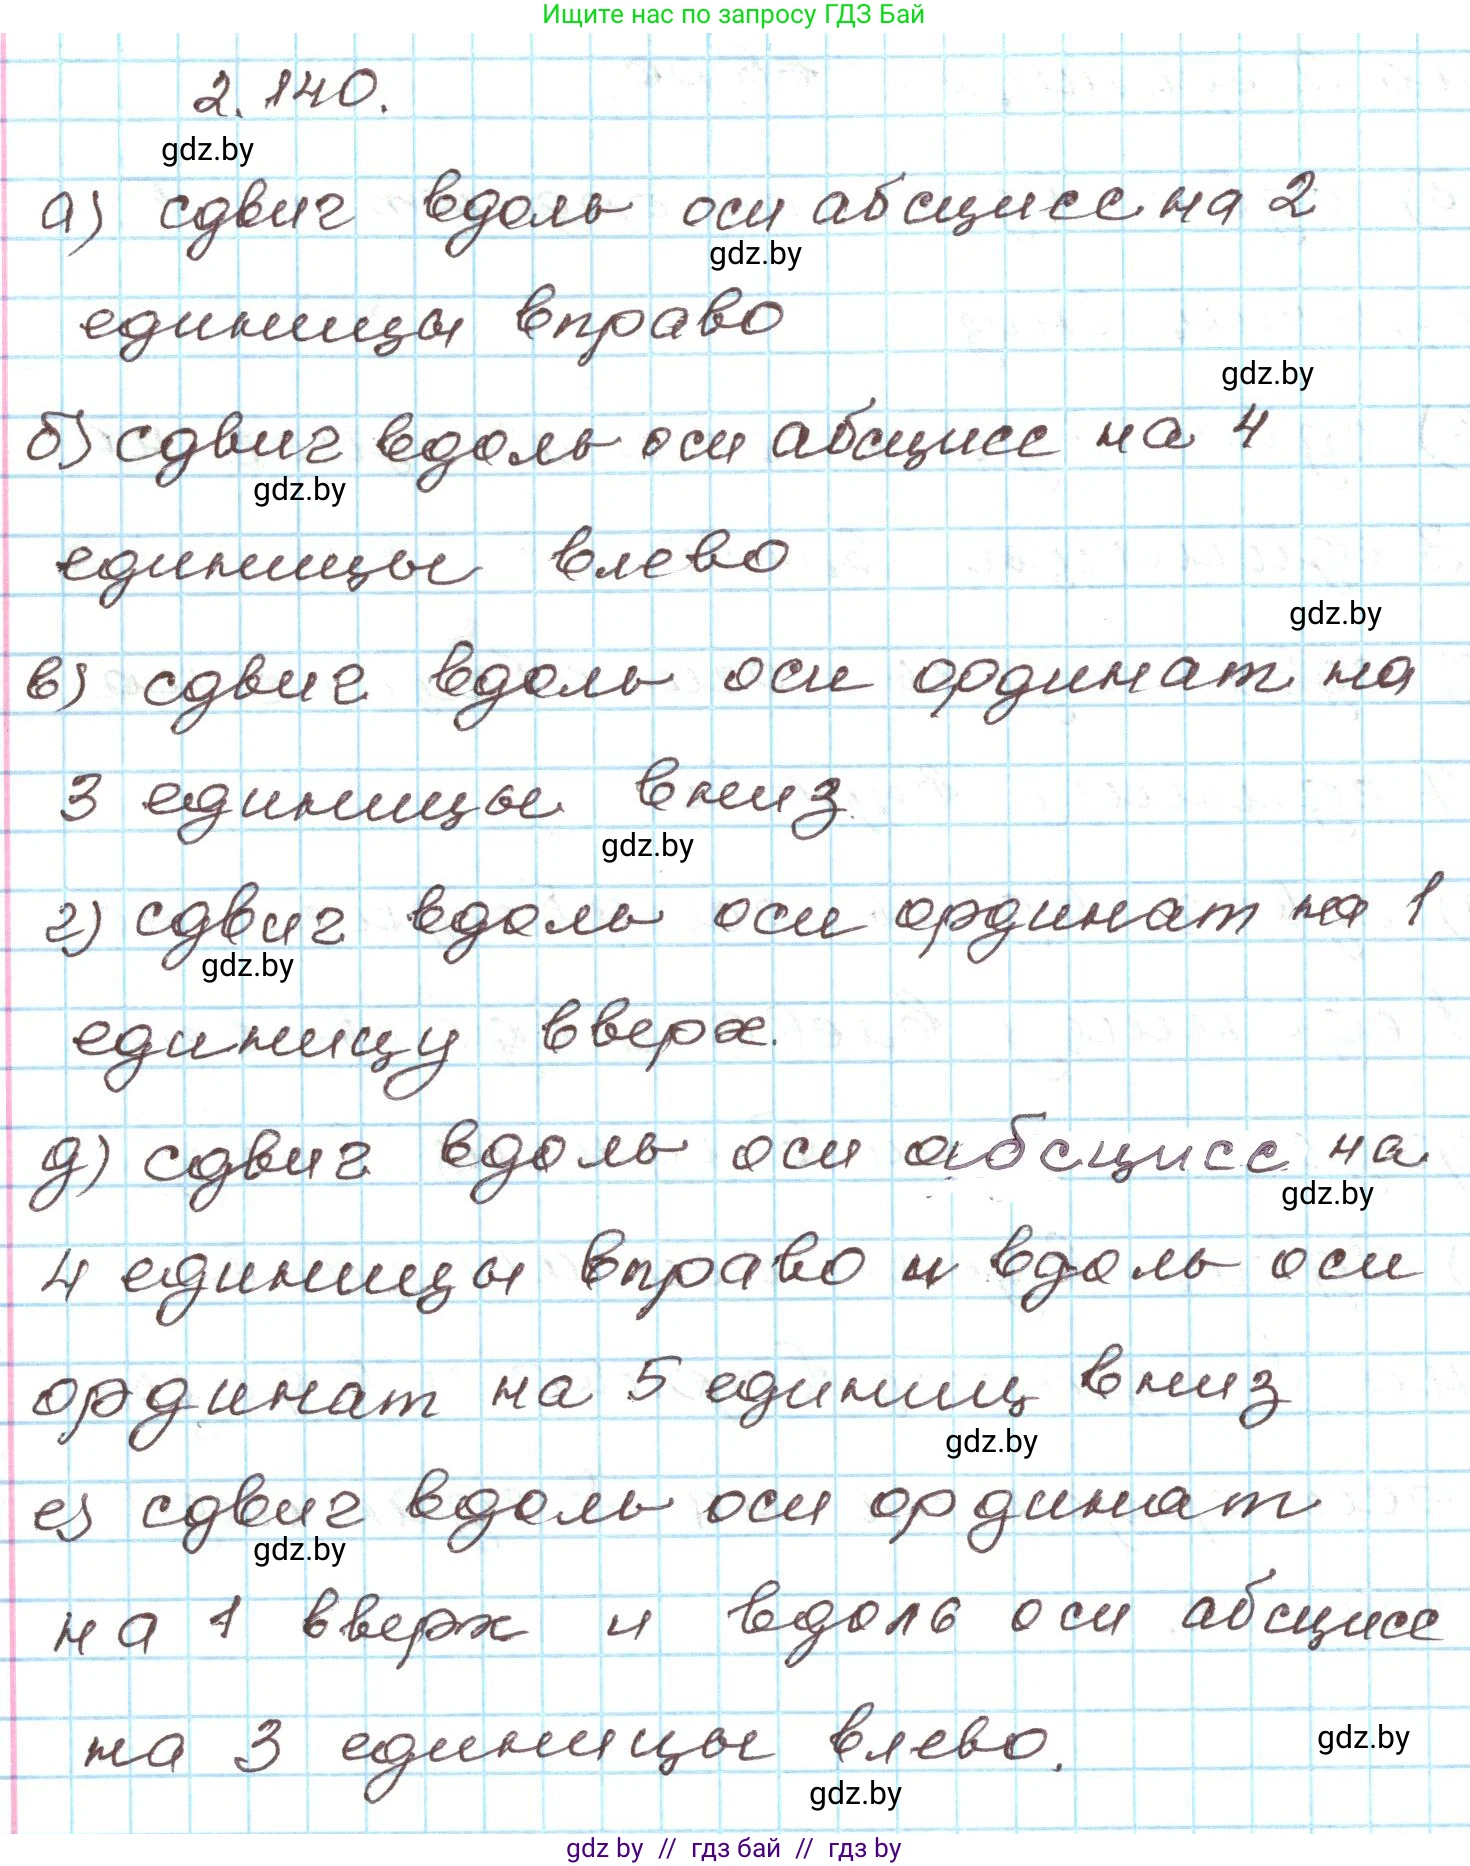 Ищите нас по запросу ГДЗ Бай
2.140.
gdz.by
а) сдвиг вдоль оси абсцисс на 2
gdz.by
единицы вправо
gdz.by
б) сдвиг вдоль оси абсцисс на 4
gdz.by
единицы влево
gdz.by
в) сдвиг вдоль оси ординат на
3 единицы вниз
gdz.by
г) сдвиг вдоль оси ординат на 1
gdz.by
единицу вверх.
д) сдвиг вдоль оси абсцисс на
gdz.by
4 единицы вправо и вдоль оси
ординат на 5 единиц вниз
gdz.by
е) сдвиг вдоль оси ординат
gdz.by
на 1 вверх и вдоль оси абсцисс
на 3 единицы влево.
gdz.by
gdz.by
gdz by // гдз бай // гдз by